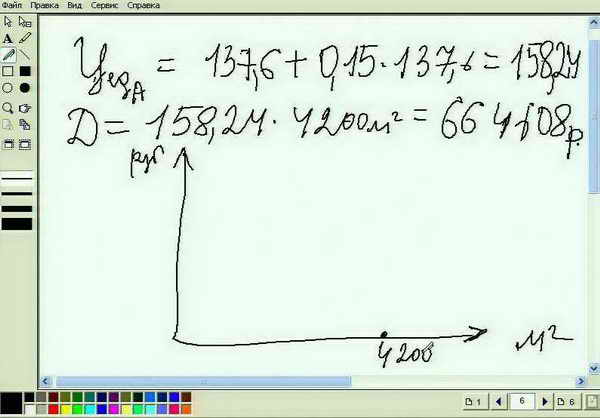 Файл Правка Вид Сервис Справка
Ц ед A = 137,6 + 0,15 · 137,6 = 158,24
D = 158,24 · 4200 м² = 664608 р.
руб
4200 м²
1 6 6